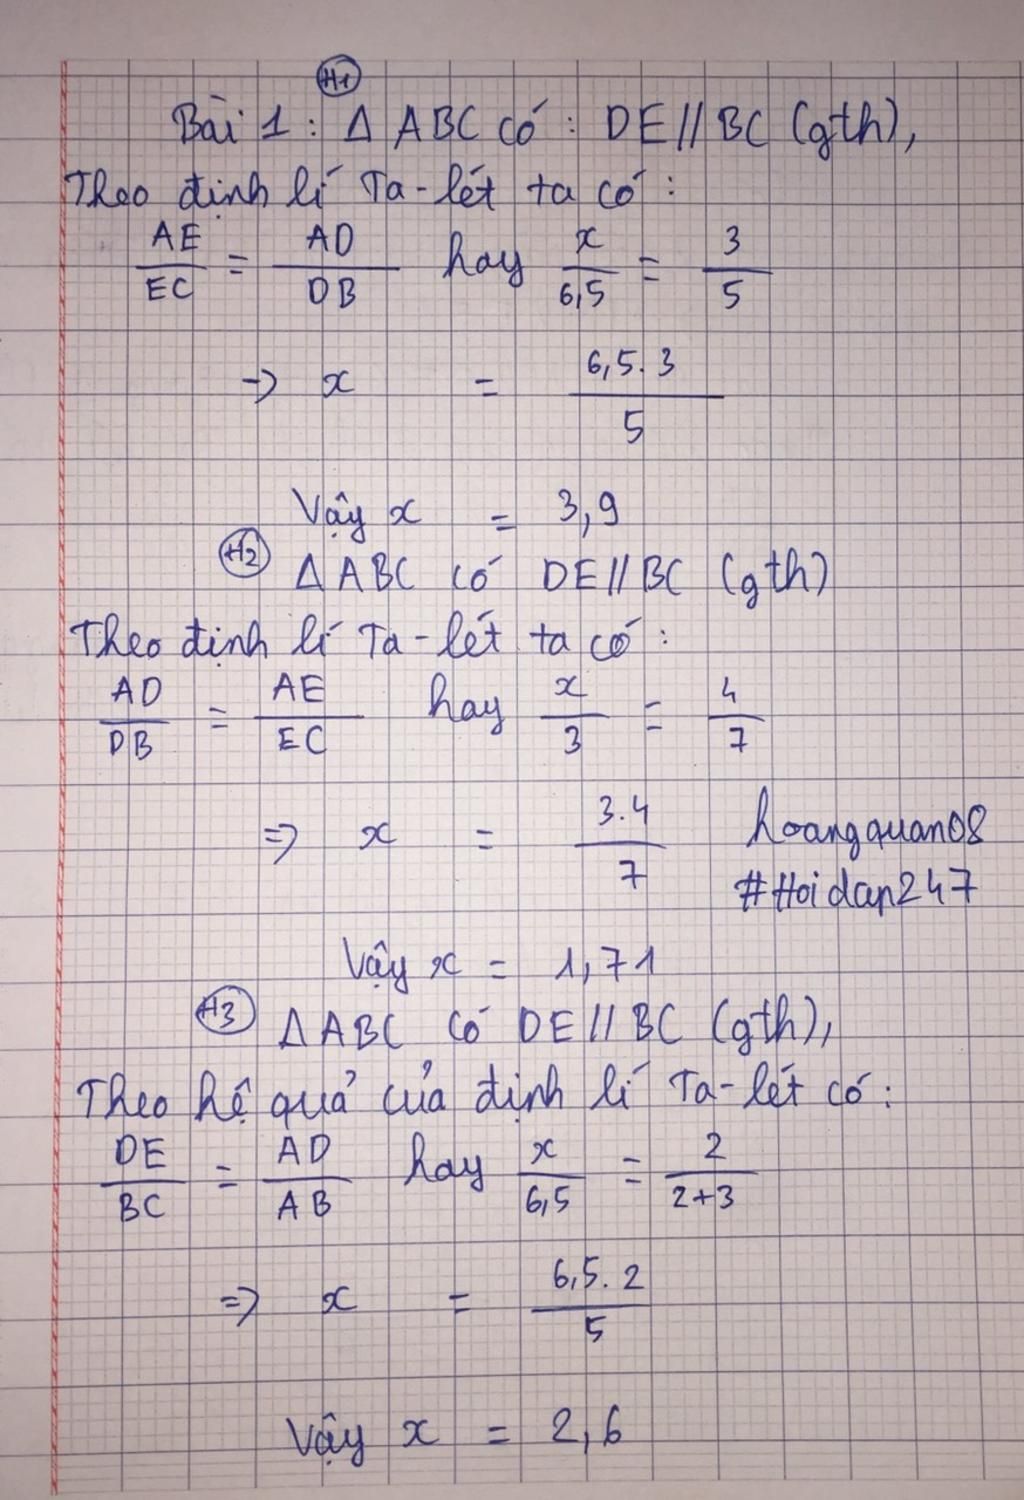 H1
Bài 1: Δ ABC có: DE//BC (gth),
Theo định lí Ta-lét ta có:
AE/EC = AD/DB hay x/6,5 = 3/5
=> x = 6,5.3/5
Vậy x = 3,9
H2
Δ ABC có DE//BC (gth)
Theo định lí Ta-lét ta có:
AD/DB = AE/EC hay x/3 = 4/7
=> x = 3.4/7
hoangquan08
#Hoidap247
Vậy x = 1,71
H3
Δ ABC có DE//BC (gth),
Theo hệ quả của định lí Ta-lét có:
DE/BC = AD/AB hay x/6,5 = 2/2+3
=> x = 6,5.2/5
Vậy x = 2,6